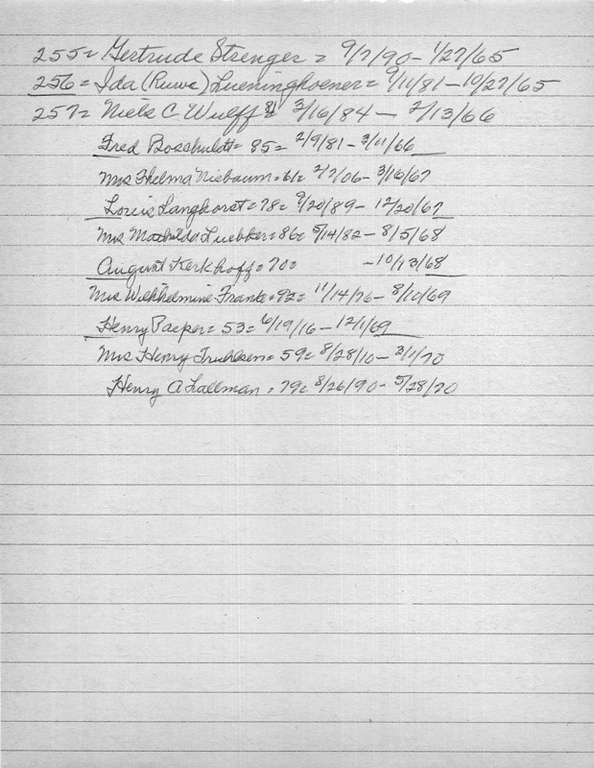 255 = Gertrude Strenger = 9/7/90 - 1/27/65
256 = Ida (Ruwe) Lueninghoener = 9/11/81 - 10/27/65
257 = Niels C Wulff 81 3/16/84 - 2/13/66
Fred Bosshuldt = 85 = 2/9/81 - 3/11/66
Mrs Thelma Niebaum = 61 = 2/7/06 - 3/16/67
Louis Langhorst = 78 = 9/20/89 - 12/20/67
Mrs Machilda Luebker = 86 = 5/14/82 - 8/5/68
August Kerkhoff = 70 = - 10/13/68
Mrs Wilhelmine Franke = 92 = 11/14/76 - 8/10/69
Henry Paeper = 53 = 6/19/16 - 12/1/69
Mrs Henry = 59 = 8/28/10 - 3/1/70
Henry A Lallman = 79 = 8/26/90 - 5/28/70